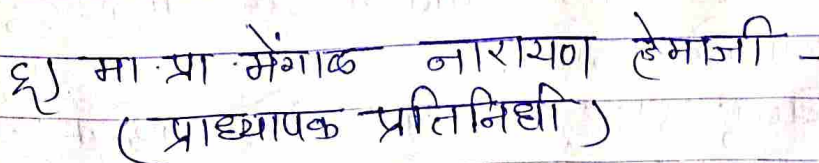 ६) मा.प्रा.मेंगाळ नारायण हेमाजी -
( प्राध्यापक प्रतिनिधी )